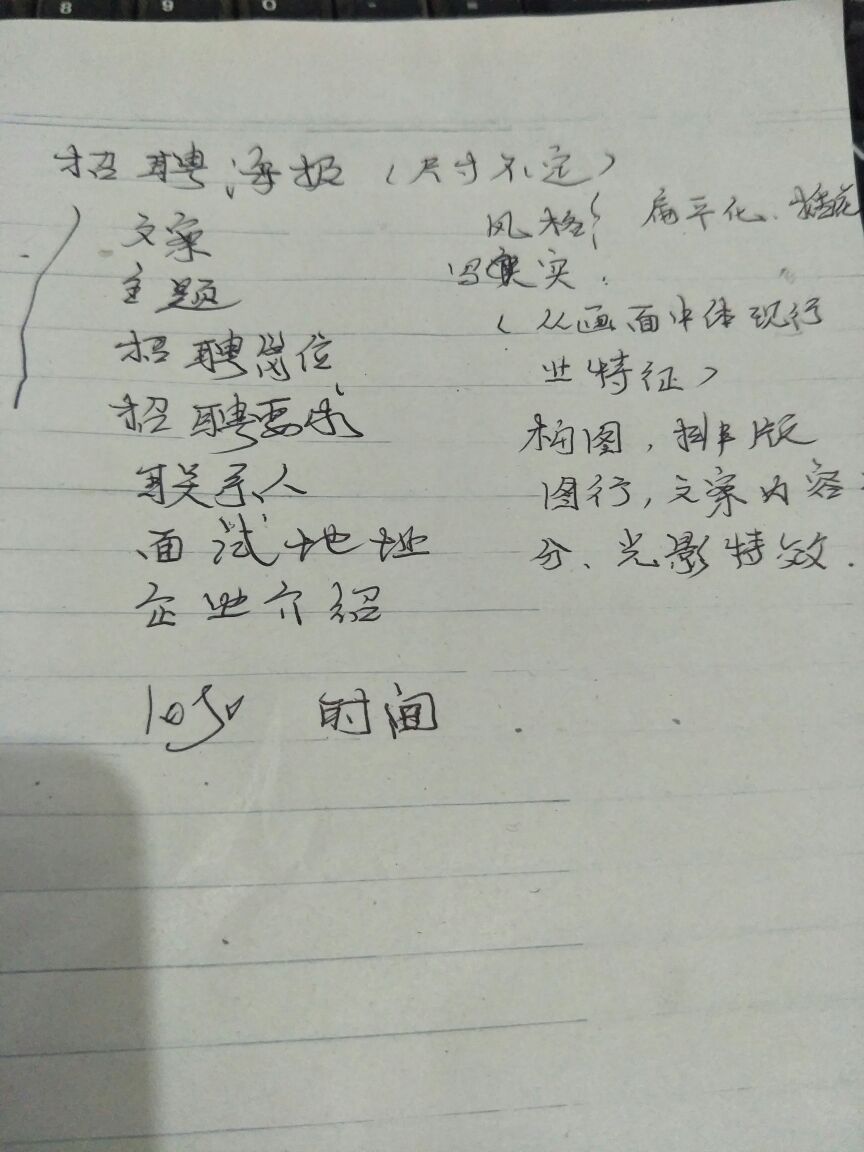 8 9 0
招聘海报（尺寸不定）
文案
主题
招聘岗位
招聘要求
联系人
面试地址
企业介绍
logo 时间
风格： 扁平化、
写实.
（从画面中体现行
业特征）
构图，排版
图行，文案内容
分、光影特效.